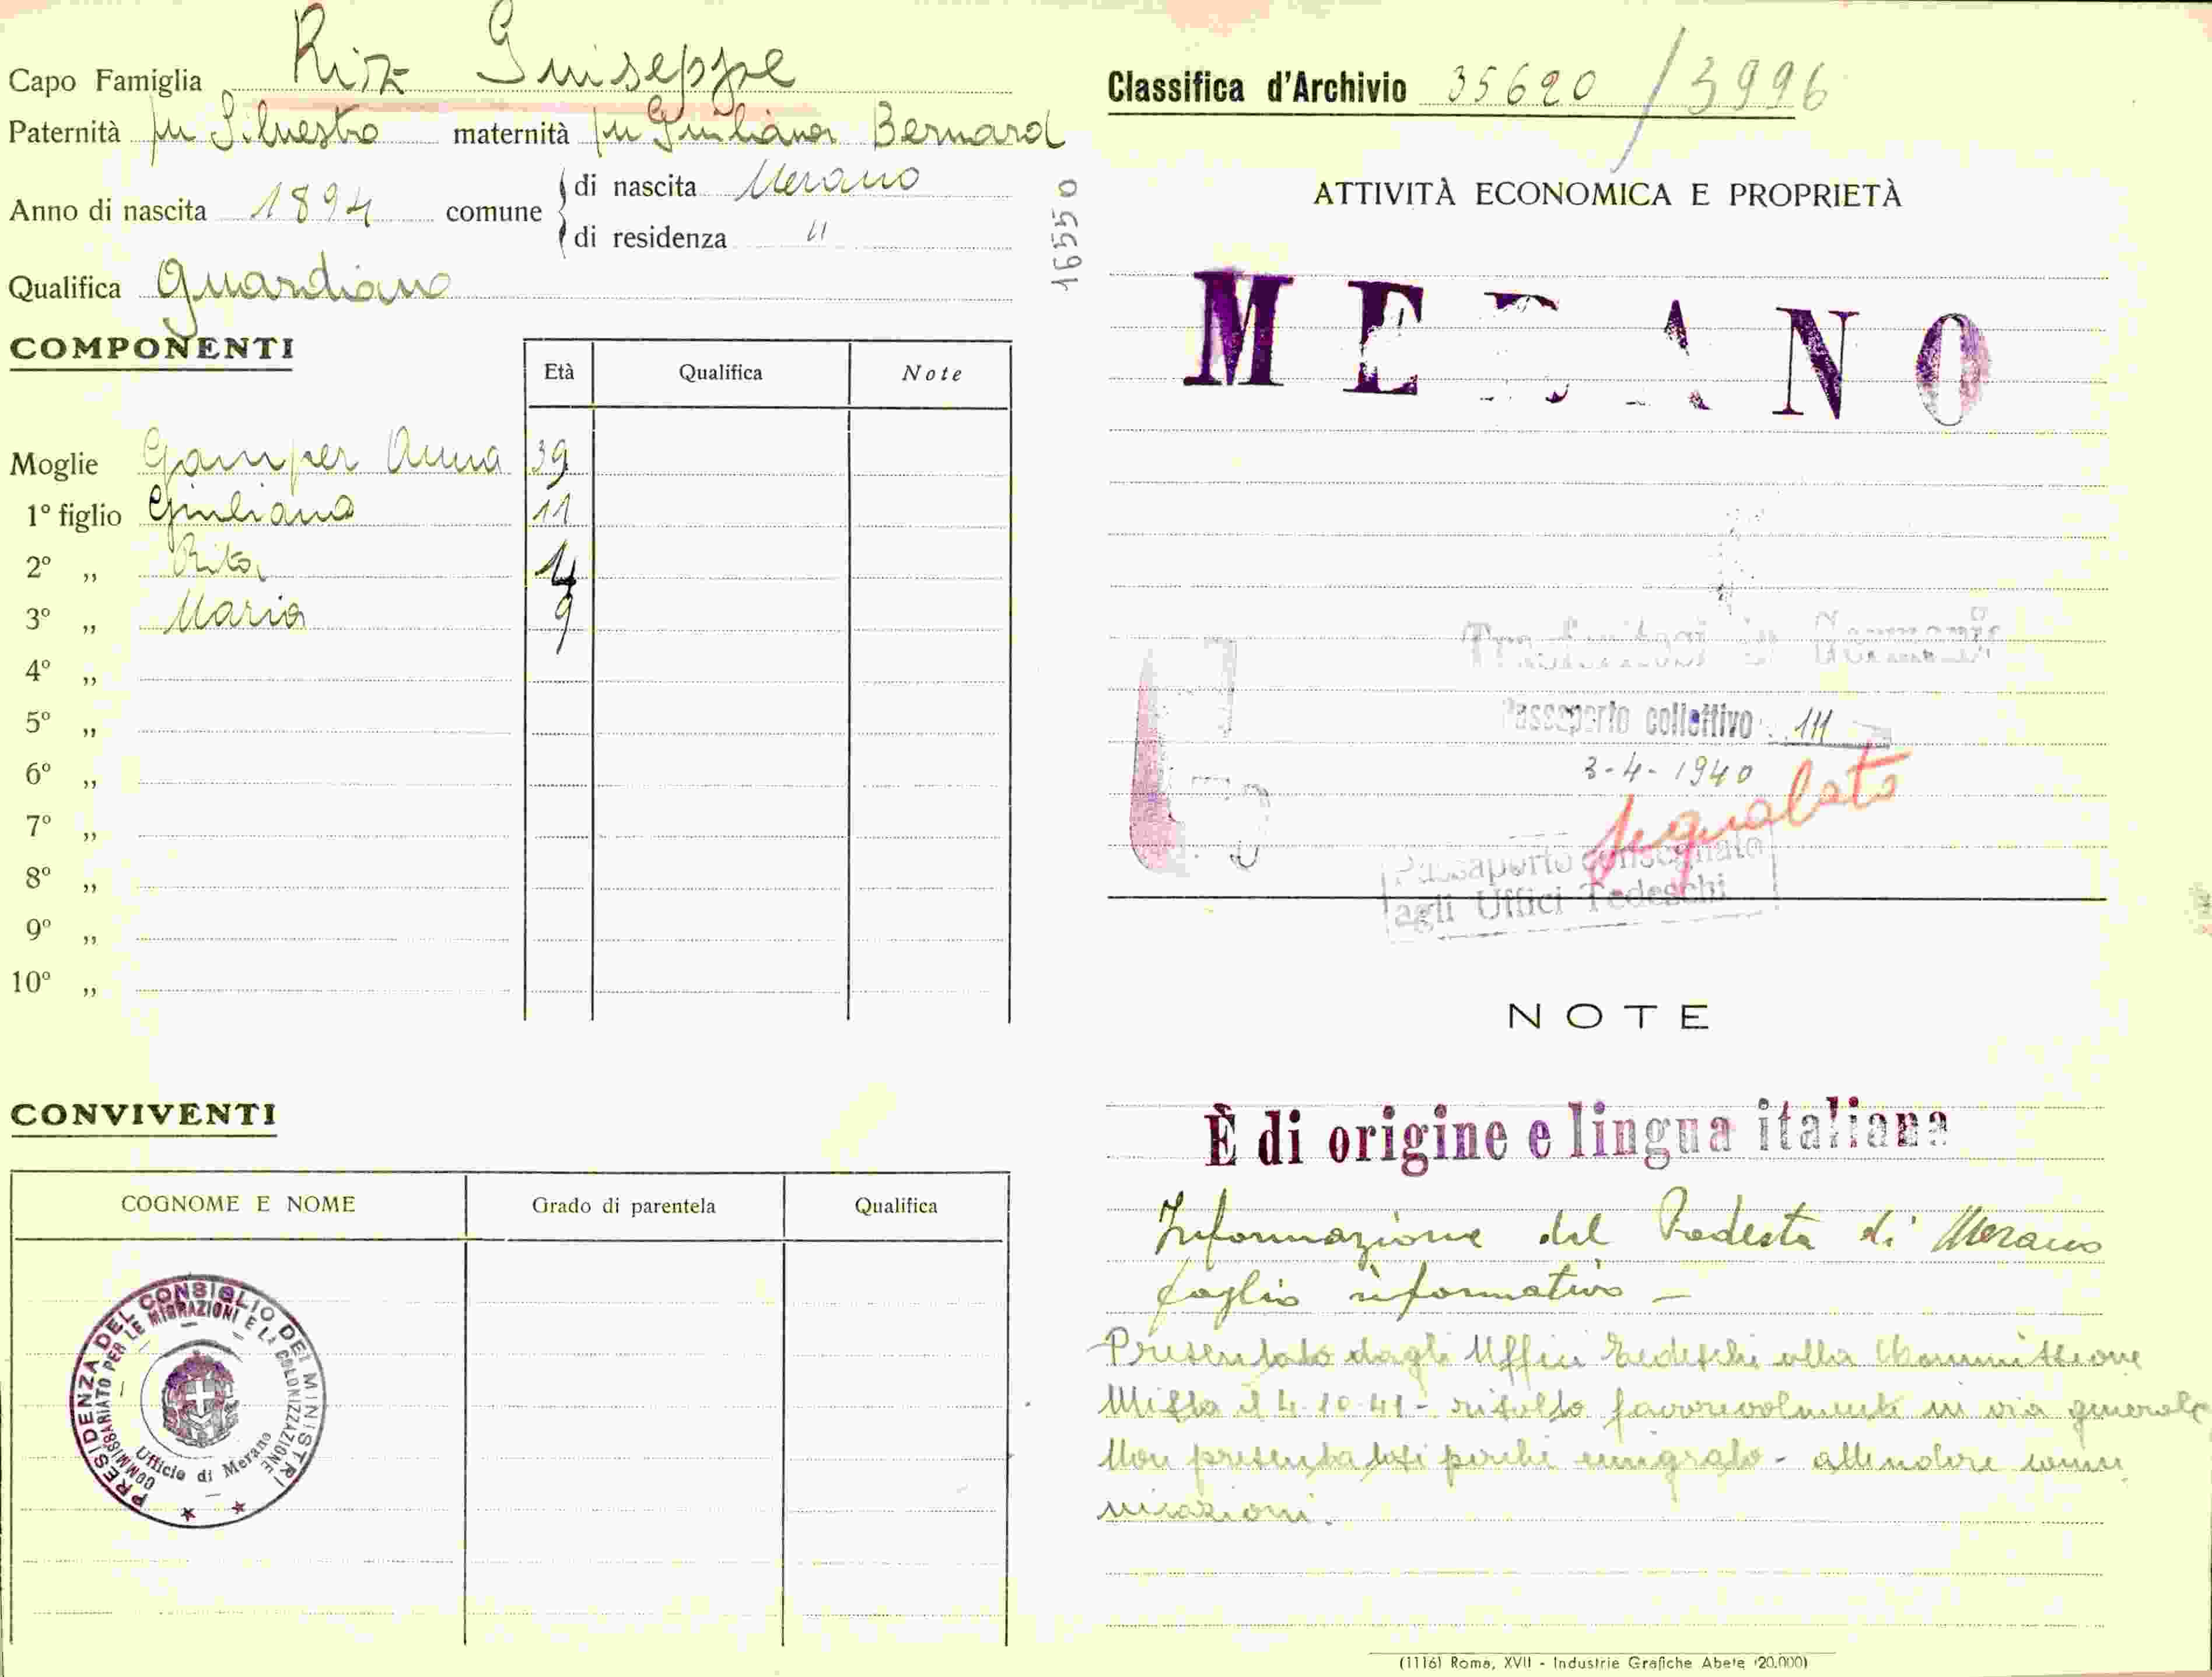 Capo Famiglia Riz Giuseppe
Paternità fu Silvestro maternità fu Giuliana Bernard
Anno di nascita 1894 comune
di nascita Merano
di residenza "
Qualifica guardiano
16550
COMPONENTI
Età Qualifica Note
Moglie Gamper Anna 39
1° figlio Giuliana 11
2° „ Rita
3° „ Maria 9
4° „
5° „
6° „
7° „
8° „
9° „
10° „
CONVIVENTI
COGNOME E NOME Grado di parentela Qualifica
PRESIDENZA DEL CONSIGLIO DEI MINISTRI
COMMISSARIATO PER LE MIGRAZIONI E LA COLONIZZAZIONE
Ufficio di Merano
Classifica d'Archivio 35620 / 3996
ATTIVITÀ ECONOMICA E PROPRIETÀ
MERANO
Passaporto collettivo 111
3-4-1940
segnalato
Passaporto consegnato
agli Uffici Tedeschi
NOTE
È di origine e lingua italiana
Informazione del Podestà di Merano
foglio informativo -
Presentato dagli Uffici Tedeschi alla Commissione
Mista il 4-10-41 - risolto favorevolmente in via generale
Non presentatosi perché emigrato - attendere comu
nicazioni.
(1116) Roma, XVII - Industrie Grafiche Abete (20.000)